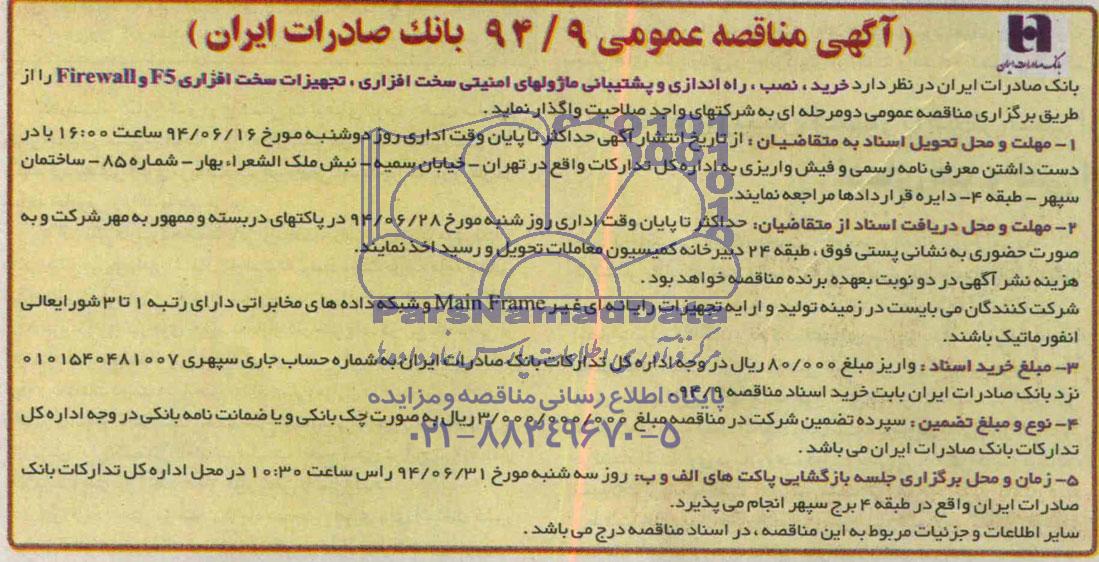 ( آگهی مناقصه عمومی ۹ / ۹۴ بانک صادرات ایران )
بانک صادرات ایران
بانک صادرات ایران در نظر دارد خرید ، نصب ، راه اندازی و پشتیبانی ماژولهای امنیتی سخت افزاری ، تجهیزات سخت افزاری F5 و Firewall را از
طریق برگزاری مناقصه عمومی دومرحله ای به شرکتهای واجد صلاحیت واگذار نماید .
۱- مهلت و محل تحویل اسناد به متقاضیان : از تاریخ انتشار آگهی حداکثر تا پایان وقت اداری روز دوشنبه مورخ ۹۴/۰۶/۱۶ ساعت ۱۶:۰۰ با در
دست داشتن معرفی نامه رسمی و فیش واریزی به اداره کل تدارکات واقع در تهران - خیابان سمیه - نبش ملک الشعراء بهار - شماره ۸۵ - ساختمان
سپهر - طبقه ۴- دایره قراردادها مراجعه نمایند.
۲- مهلت و محل دریافت اسناد از متقاضیان: حداکثر تا پایان وقت اداری روز شنبه مورخ ۹۴/۰۶/۲۸ در پاکتهای دربسته و ممهور به مهر شرکت و به
صورت حضوری به نشانی پستی فوق ، طبقه ۲۴ دبیرخانه کمیسیون معاملات تحویل و رسید اخذ نمایند.
هزینه نشر آگهی در دو نوبت بعهده برنده مناقصه خواهد بود .
شرکت کنندگان می بایست در زمینه تولید و ارایه تجهیزات رایانه ای غیر Main Frame و شبکه داده های مخابراتی دارای رتبه ۱ تا ۳ شورایعالی
انفورماتیک باشند.
ParsNamadData
۳- مبلغ خرید اسناد : واریز مبلغ ۸۰/۰۰۰ ریال در وجه اداره کل تدارکات بانک صادرات ایران به شماره حساب جاری سپهری ۰۱۰۱۵۴۰۴۸۱۰۰۷
نزد بانک صادرات ایران بابت خرید اسناد مناقصه ۹۴/۹
پایگاه اطلاع رسانی مناقصه و مزایده
۴- نوع و مبلغ تضمین : سپرده تضمین شرکت در مناقصه مبلغ ۳/۰۰۰/۰۰۰/۰۰۰ ریال به صورت چک بانکی و یا ضمانت نامه بانکی در وجه اداره کل
تدارکات بانک صادرات ایران می باشد .
۰۲۱-۸۸۳۴۹۶۷۰-۵
۵- زمان و محل برگزاری جلسه بازگشایی پاکت های الف و ب: روز سه شنبه مورخ ۹۴/۰۶/۳۱ راس ساعت ۱۰:۳۰ در محل اداره کل تدارکات بانک
صادرات ایران واقع در طبقه ۴ برج سپهر انجام می پذیرد.
سایر اطلاعات و جزئیات مربوط به این مناقصه ، در اسناد مناقصه درج می باشد .